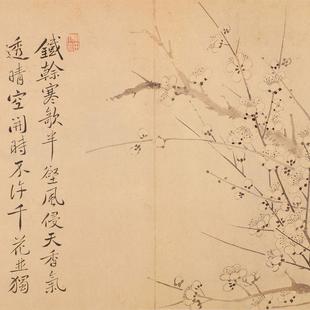 鐵幹寒欹半壁風侵天香氣
透晴空開時不許千花並獨